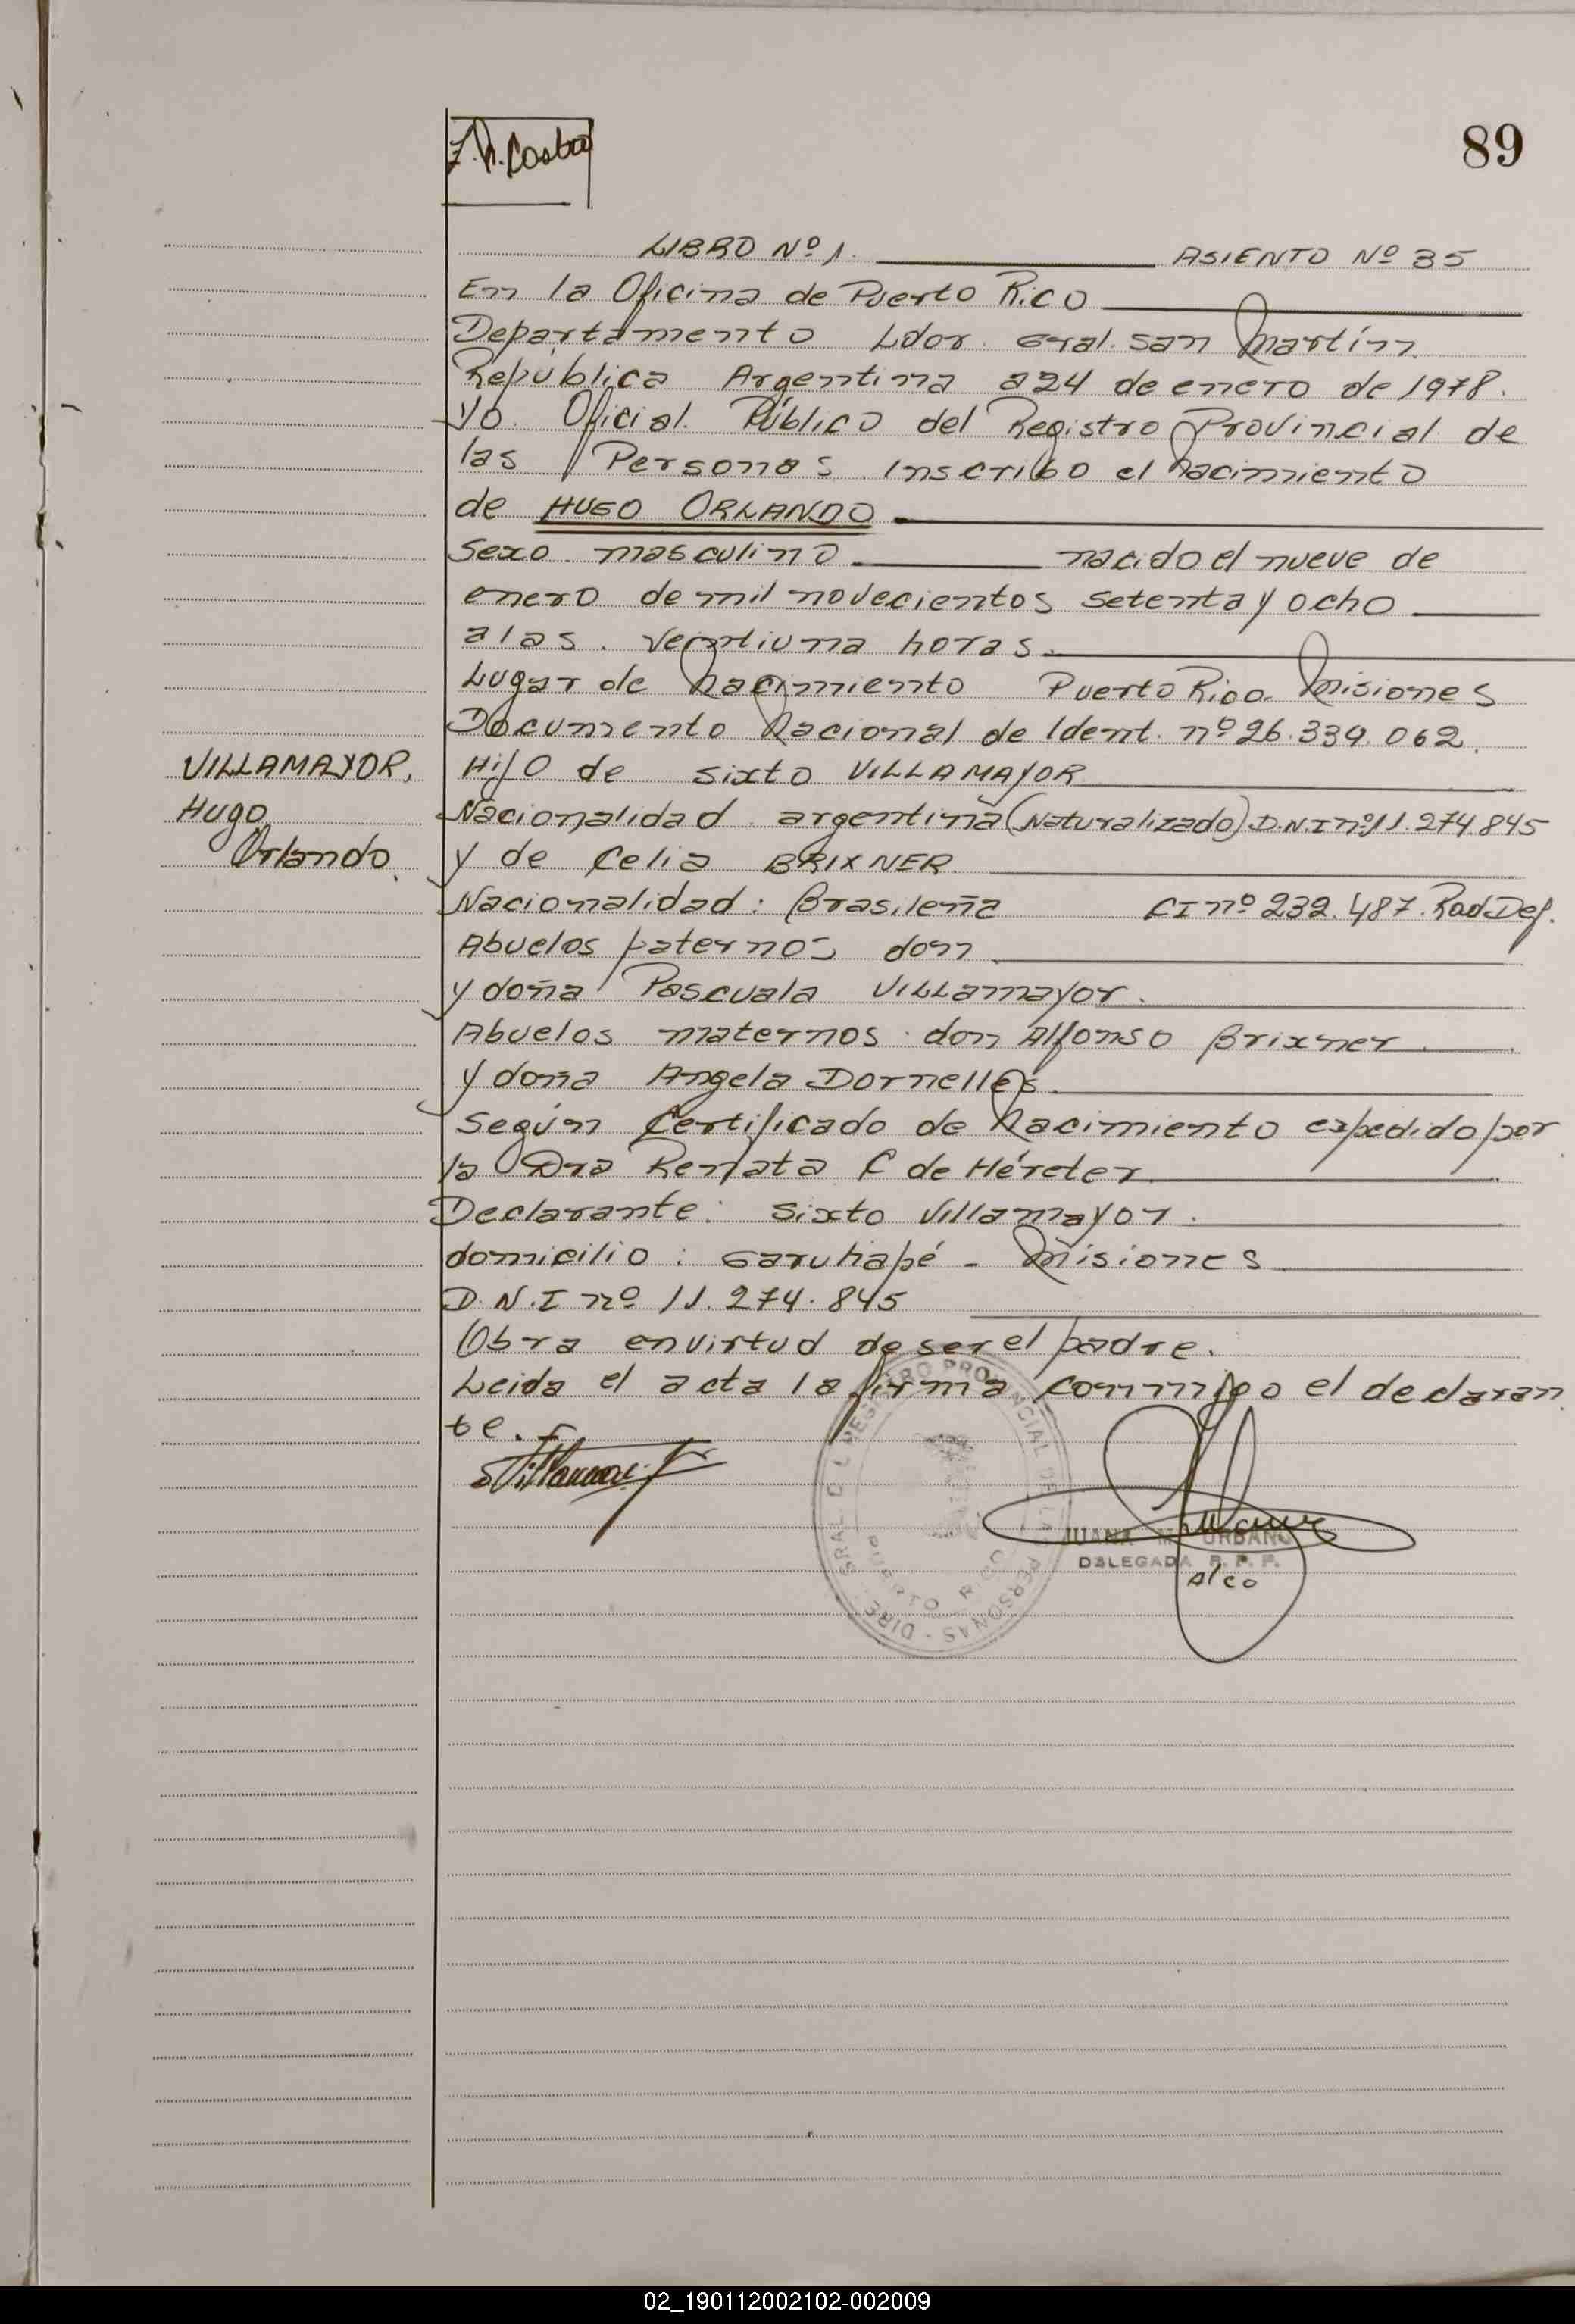 89
LIBRO Nº 1. ASIENTO Nº 35
En la Oficina de Puerto Rico
Departamento Ldor. Gral. San Martín
República Argentina a 24 de enero de 1978.
Yo Oficial Público del Registro Provincial de
las Personas Inscribo el Nacimiento
de HUGO ORLANDO
Sexo masculino nacido el nueve de
enero de mil novecientos setenta y ocho
a las veintiuna horas.
Lugar de Nacimiento Puerto Rico. Misiones
Documento Nacional de Ident. nº 26.339.062.
VILLAMAYOR,
Hugo
Orlando.
Hijo de Sixto VILLAMAYOR
Nacionalidad argentina (Naturalizado) D.N.I nº 11.274.845
y de Celia BRIXNER
Nacionalidad: Brasileña CI nº 232.487. Rad Def.
Abuelos paternos don
y doña Pascuala Villamayor.
Abuelos maternos don Alfonso Brixner
y doña Angela Dornelles.
Según Certificado de Nacimiento expedido por
la Dra Renata C de Héreter.
Declarante: Sixto Villamayor.
domicilio: Garuhapé - Misiones
D.N.I nº 11.274.845
Obra en virtud de ser el padre.
Leida el acta la firma conmigo el declaran
te.
JUANA M. URBANO
DELEGADA R. P. P.
DIRE. GRAL DEL REGISTRO PROVINCIAL DE LAS PERSONAS -
PUERTO RICO
02_190112002102-002009